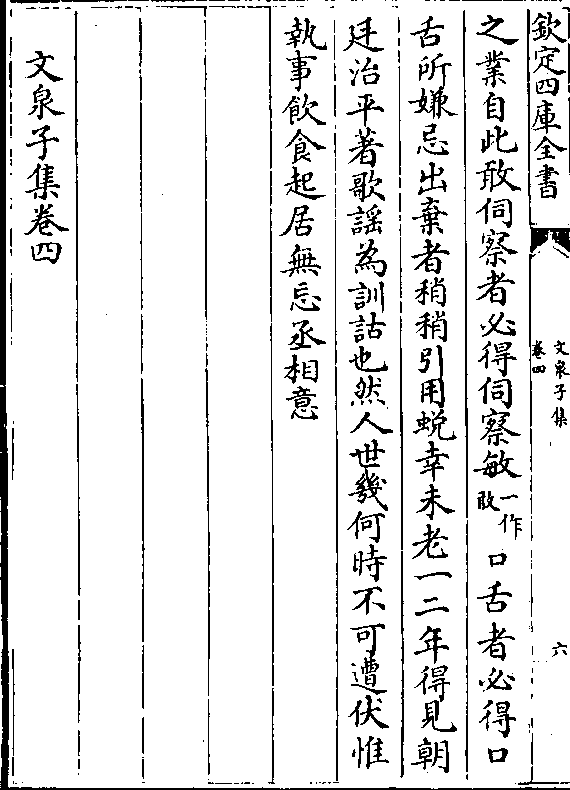 欽定四庫全書
文泉子集
卷四
六
之業自此敢伺察者必得伺察敏一作敢口舌者必得口
舌所嫌忌出棄者稍稍引用蛻幸未老一二年得見朝
廷治平著歌謡為訓詁也然人世幾何時不可遭伏惟
執事飲食起居無忘丞相意
文泉子集卷四